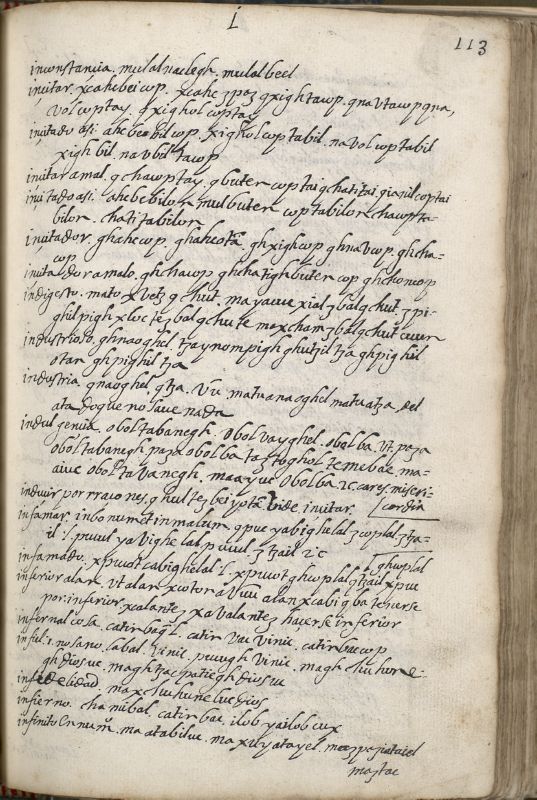 I
113
inconstancia. mulal naelegh. mulal beel
incitar. xcahebei cop. xcahe zpaz qxigh tacop. qna vtacop qna,
vol coptay. qxighol coptay
incitado asi. ahebeabil cop. xighol coptabil. navol coptabil
xigh bil. navbil tacop
incitar a mal. q chacoptay. q buter coptai q chatitai
incitado asi. ahebebilon mulbuter coptabilon chacopta-
bilon. chatitabilon
incitador. ghahecop. ghaheota. ghxighcop ghnavcop. ghcha-
cop
incitador a malo. ghchacop ghchatigh buter cop
indigesto. mato xvetz q chut. mayavue xial z balq chut z pi-
ghil pigh xloc tez balq chute maxcham z balq chut
industrioso. ghnaoghel tzaynom pigh ghutzil tza ghpighil
otan ghpighil tza
industria. gnaoghel q tza. Vu. matuanaoghel matuatza. del
atado que no save nada
indulgencia. obol tabanegh. obol vayghel. obol ba. vt. paza
obol tabanegh paza obol ba taztoghol temebae ma-
avue obol tabanegh. maayue obol ba. 2c. cares. miseri-
cordia
inducir por rraçones, q hultez bei yota vide. incitar
infamar. in bonum et in malum q pue yabighelal z coplal z tza-
il: l. puvul yabighelal puvul z tzail 2c
ghcoplal
infamado. xpucot cabighelal l. xpucot ghcoplal q tzail xpue
inferior alan vt alan xcotor avivu alan xcabi q ba tenerse
por inferior xcalantez xavalantez hacerse inferior
infernal cosa. catinbaq l. catin vac vinic. catinbac cop
infiel. l. no sano. labal vinic. pucugh vinic. magh chuhune-
gh dios ue. magh tzac patiegh dios ue
infidelidad. max chuhunel ue dios
infierno. chamibal. catinbac. ilob yailob cux
infinito en num. ma atabilue. maxuyatayel. maxpajataiel
maztae